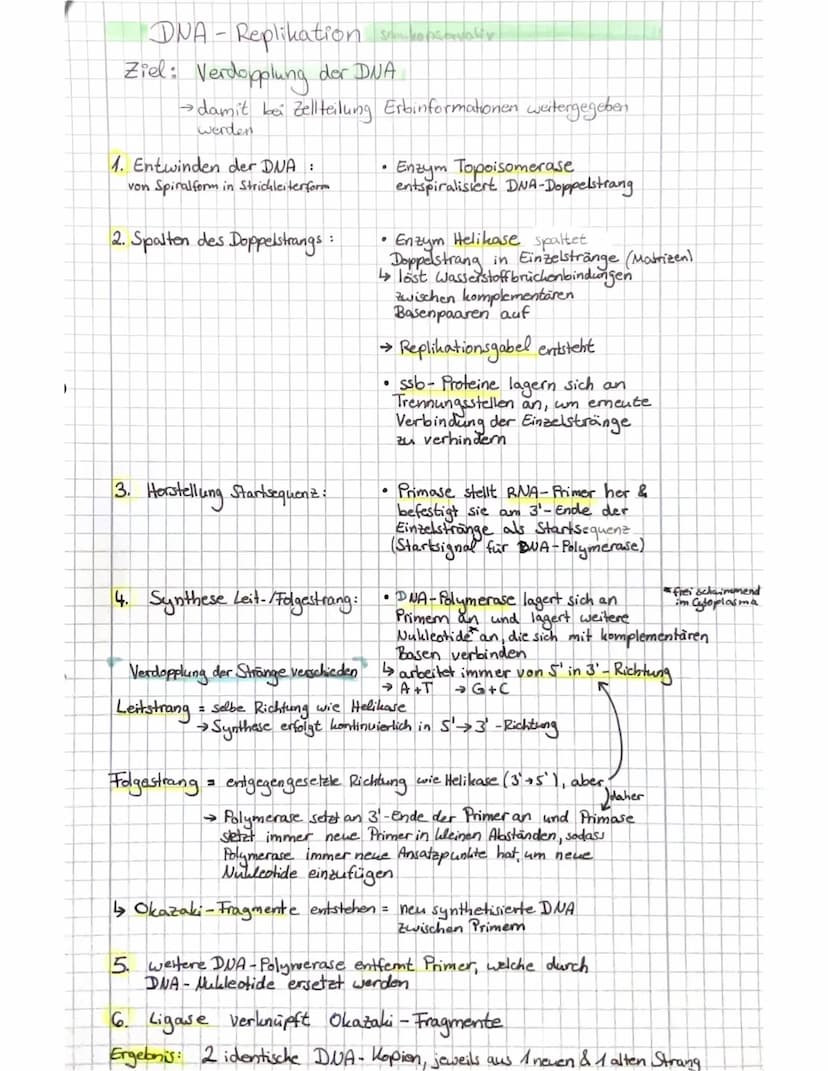 DNA - Replikation semikonservativ
Ziel: Verdopplung der DNA
→ damit bei Zellteilung Erbinformationen weitergegeben
werden
1. Entwinden der DNA :
von Spiralform in Strickleiterform
• Enzym Topoisomerase
entspiralisiert DNA-Doppelstrang
2. Spalten des Doppelstrangs :
• Enzym Helikase spaltet
Doppelstrang in Einzelstränge (Matrizen)
↳ löst Wasserstoffbrückenbindungen
zwischen komplementären
Basenpaaren auf
→ Replikationsgabel entsteht
• ssb-Proteine lagern sich an
Trennungsstellen an, um erneute
Verbindung der Einzelstränge
zu verhindern
3. Herstellung Startsequenz:
• Primase stellt RNA-Primer her &
befestigt sie am 3'-Ende der
Einzelstränge als Startsequenz
(Startsignal für DNA-Polymerase)
4. Synthese Leit-/Folgestrang:
• DNA-Polymerase lagert sich an
Primern an und lagert weitere
Nukleotide* an, die sich mit komplementären
Basen verbinden
* frei schwimmend
im Cytoplasma
Verdopplung der Stränge verschieden
↳ arbeitet immer von 5' in 3'-Richtung
→ A+T → G+C
Leitstrang = selbe Richtung wie Helikase
→ Synthese erfolgt kontinuierlich in 5'→3'-Richtung
Folgestrang = entgegengesetzte Richtung wie Helikase (3'→5'), aber
daher
→ Polymerase setzt an 3'-Ende der Primer an und Primase
setzt immer neue Primer in kleinen Abständen, sodass
Polymerase immer neue Ansatzpunkte hat, um neue
Nukleotide einzufügen
↳ Okazaki-Fragmente entstehen = neu synthetisierte DNA
zwischen Primern
5. weitere DNA-Polymerase entfernt Primer, welche durch
DNA-Nukleotide ersetzt werden
6. Ligase verknüpft Okazaki-Fragmente
Ergebnis: 2 identische DNA-Kopien, jeweils aus 1 neuen & 1 alten Strang